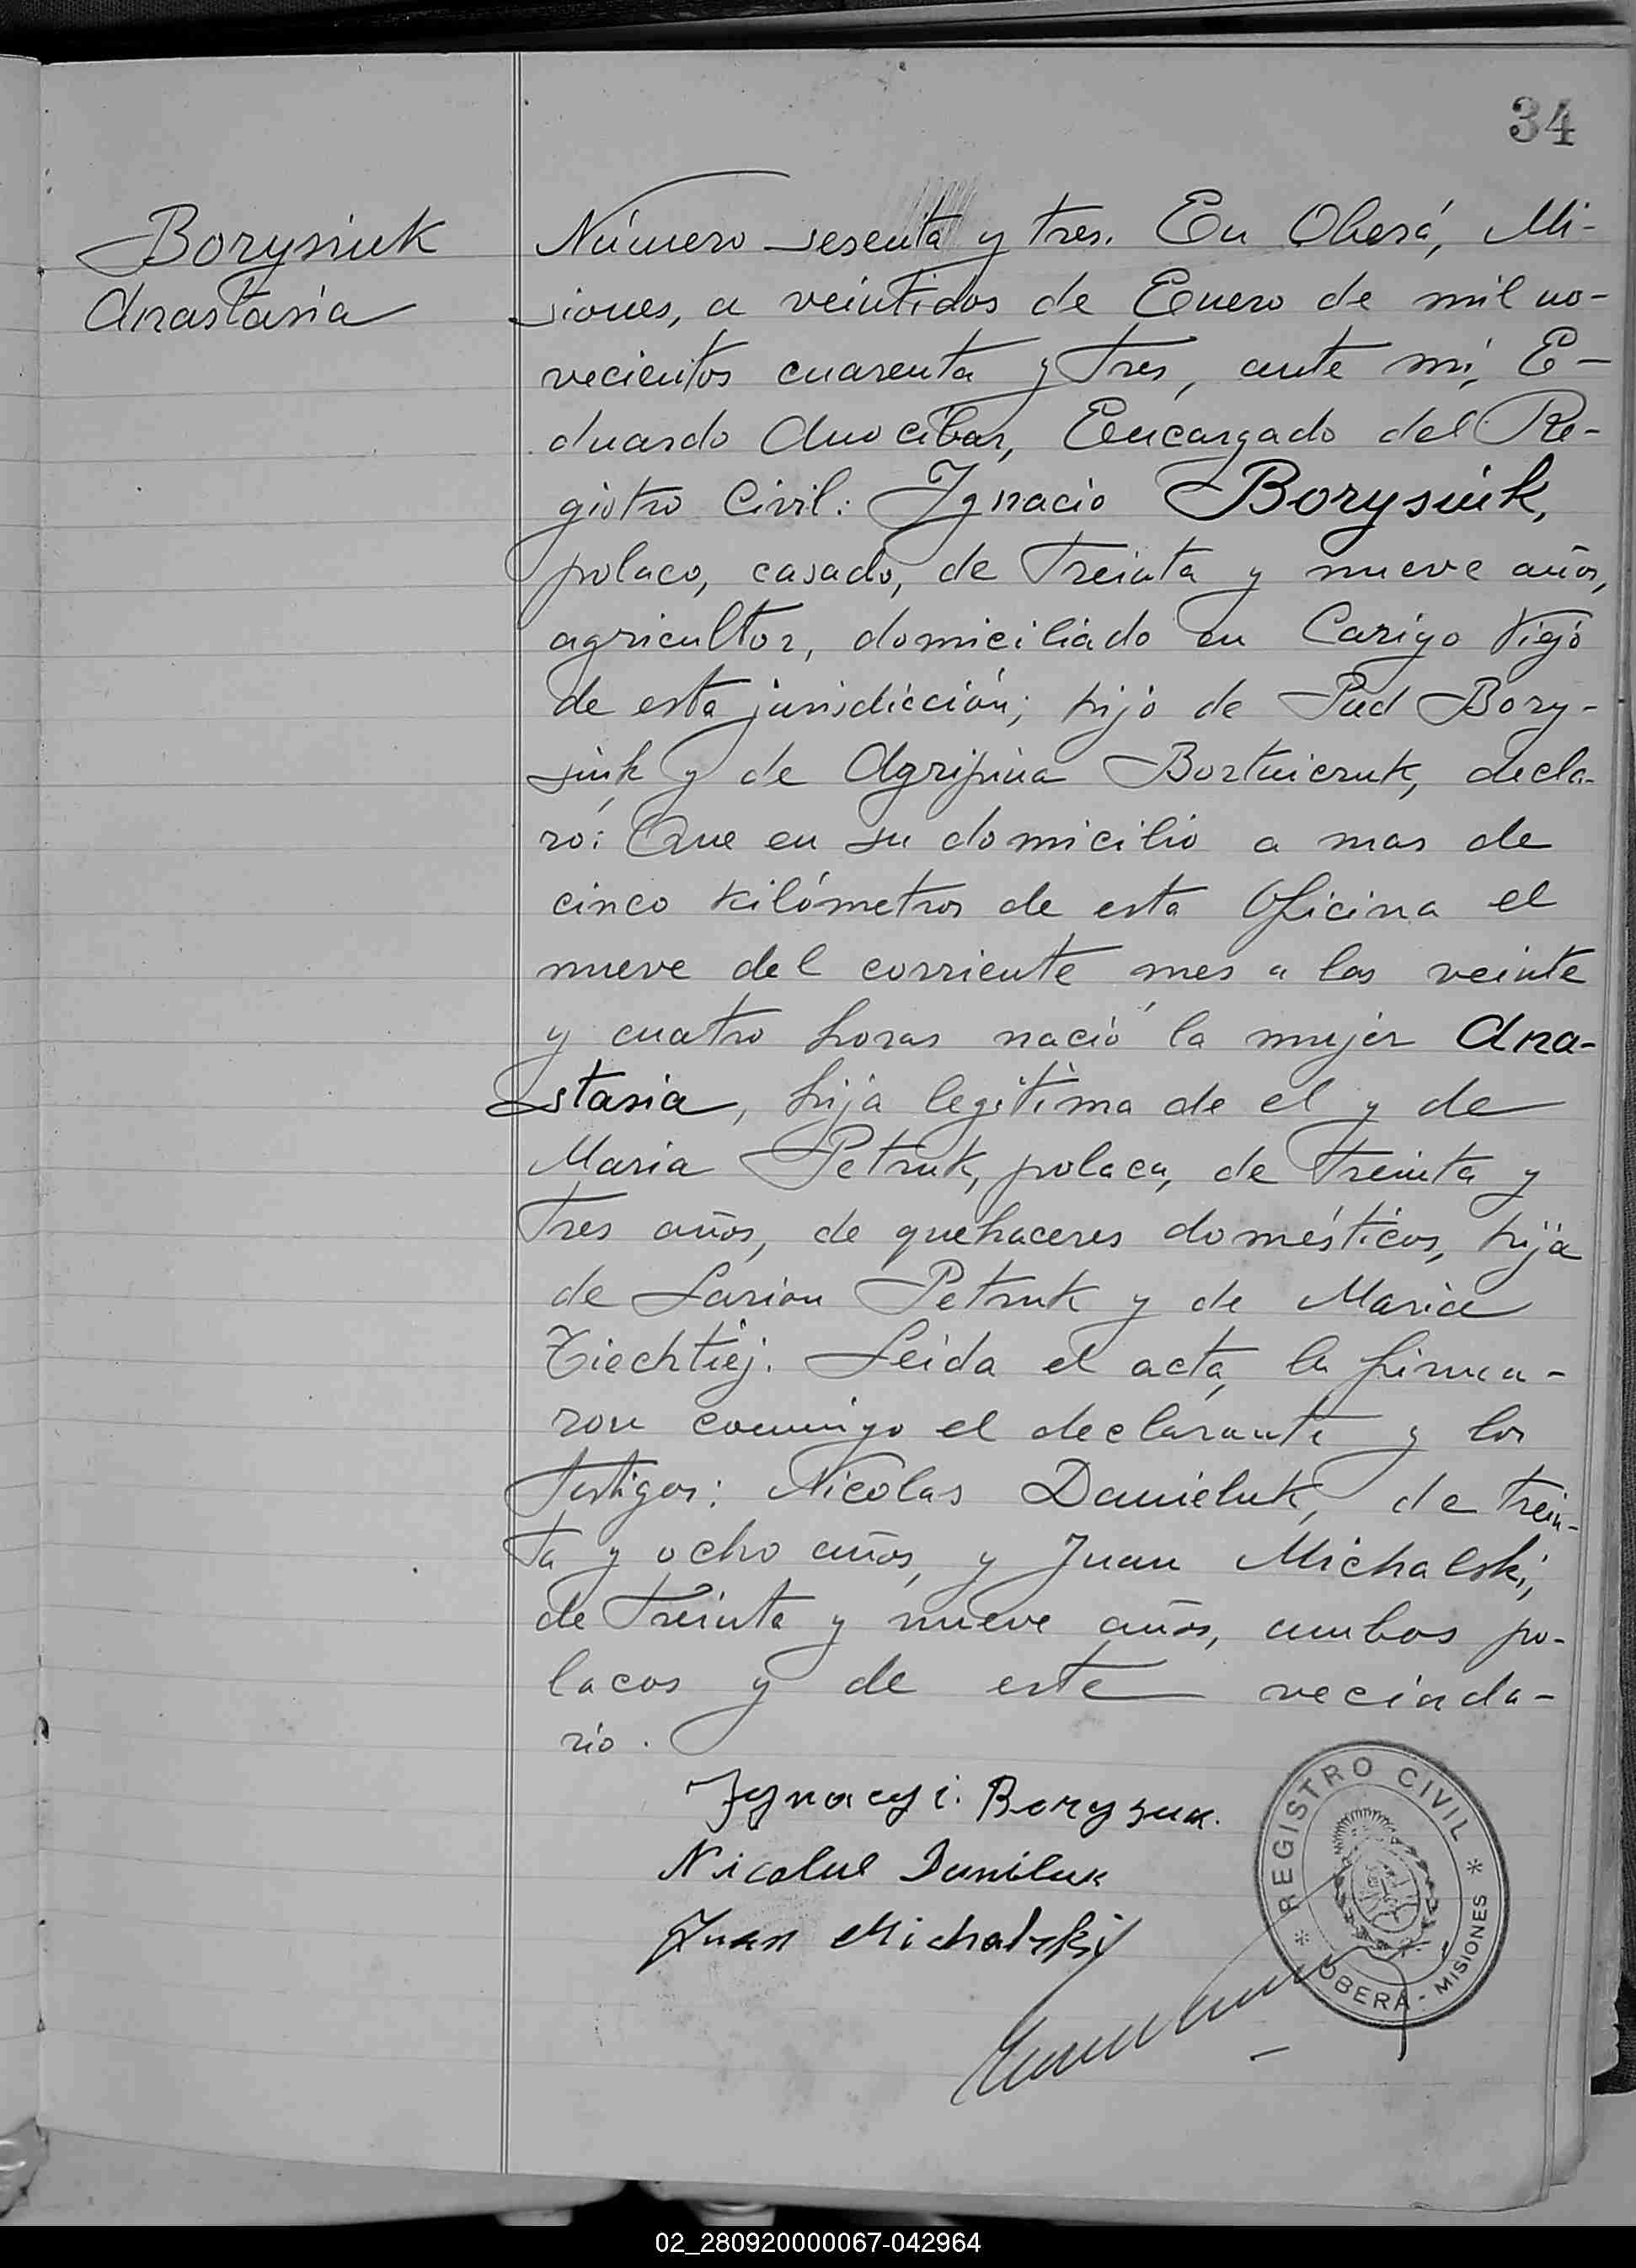 34
Borysiuk
Anastasia
Número sesenta y tres. En Oberá, Mi-
siones, a veintidos de Enero de mil no-
vecientos cuarenta y tres, ante mí, E-
duardo Anocibar, Encargado del Re-
gistro Civil: Ygnacio Borysiuk,
polaco, casado, de treinta y nueve años,
agricultor, domiciliado en Cariyo Viejo
de esta jurisdicción; hijo de Pud Bory-
siuk y de Agripina Bortniczuk, decla-
ró: Que en su domicilio a mas de
cinco kilómetros de esta Oficina el
nueve del corriente mes a las veinte
y cuatro horas nació la mujer Ana-
stasia, hija legitima de el y de
Maria Petruk, polaca, de treinta y
tres años, de quehaceres domésticos, hija
de Larion Petruk y de Maria
Tiechtiej. Leida el acta, la firma-
ron conmigo el declarante y los
testigos: Nicolas Danieluk, de trein-
ta y ocho años, y Juan Michalski,
de treinta y nueve años, ambos po-
lacos y de este vecinda-
rio.
Ygnacyi. Borysuk.
Nicolas Daniluk
Juan Michalski
REGISTRO CIVIL
OBERÁ - MISIONES
02_280920000067-042964